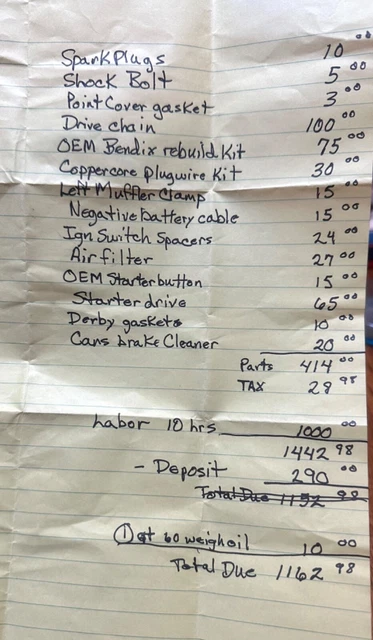 Spark Plugs 10 00
Shock Bolt 5 00
Point Cover gasket 3 00
Drive chain 100 00
OEM Bendix rebuild Kit 75 00
Coppercore plugwire Kit 30 00
Left Muffler Clamp 15 00
Negative battery cable 15 00
Ign Switch Spacers 24 00
Air filter 27 00
OEM Starter button 15 00
Starter drive 65 00
Derby gaskets 10 00
Cans brake Cleaner 20 00
Parts 414 00
TAX 28 98
Labor 10 hrs 1000 00
1442 98
- Deposit 290 00
Total Due 1152 98
① qt 60 weigh oil 10 00
Total Due 1162 98